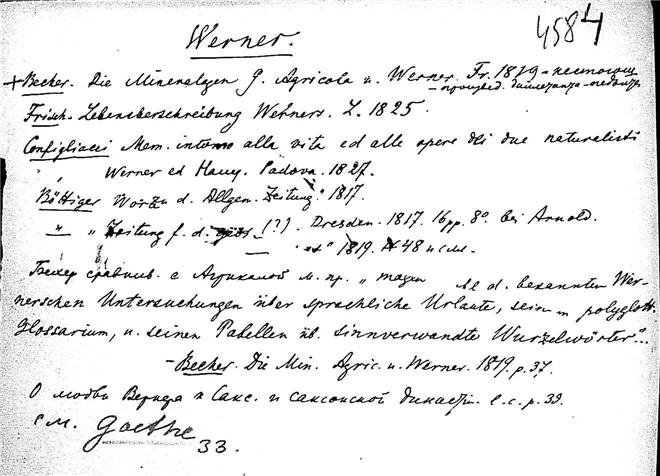 4584
Werner.
+ Becker. Die Mineralgen G. Agricola u. Werner. Fr. 1819 -
Frisch. Lebensberschreibung Werners. L. 1825.
Configliacci Mem. intorno alla vita ed alle opere dei due naturalisti
" Werner ed Hauy. Padova. 1827.
Böttiger Worzu d. Allgem. Zeitung." 1817.
" " Zeitung f. d. (?). Dresden. 1817. 16pp. 8°. bei Arnold.
" " 1819. 48 и см.
Бекер сравнив. с Агриколой м. пр. " d. bekannten Wer-
nerschen Untersuchungen über sprachliche Urlaute, sein polyglott.
Glossarium, u. seinen Tabellen üb. sinnverwandte Wurzelwörter"...
- Becker. Die Min. Agric. u. Werner. 1819. p. 37.
О любви Вернера к Сакс. и саксонской династии. l. c. p. 39.
см. Goethe 33.